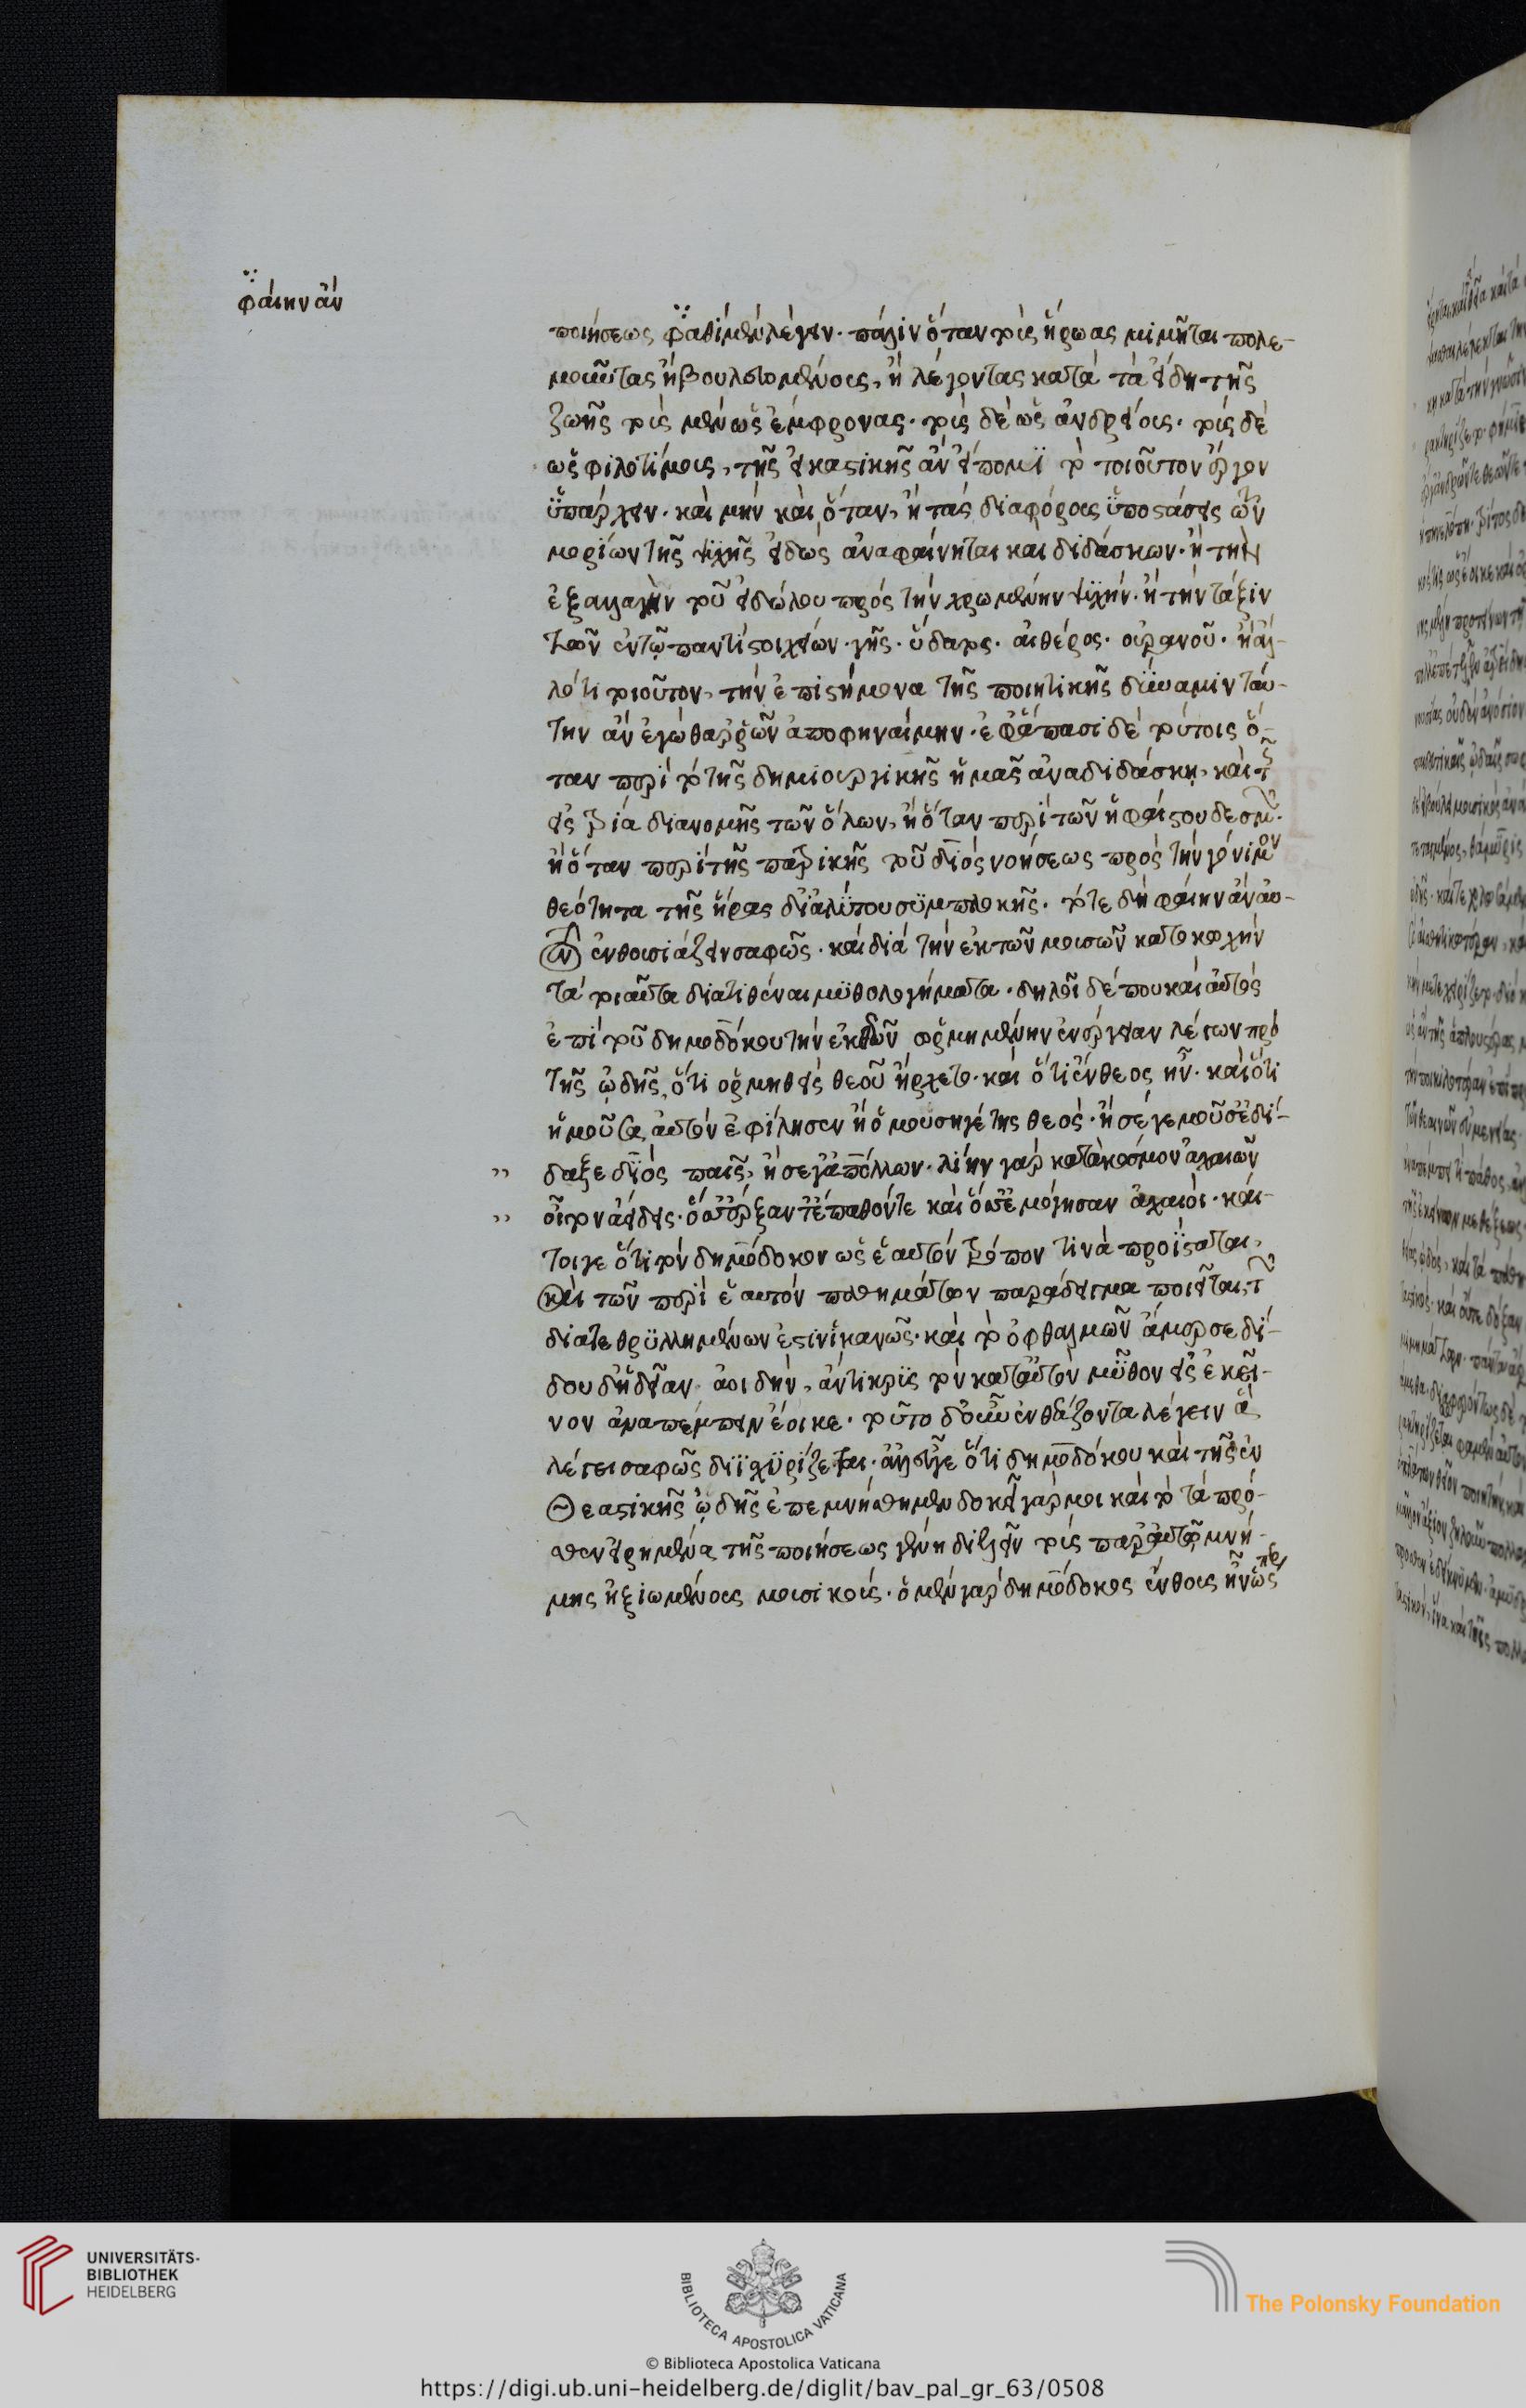 φαίην ἂν
ποιήσεως φαθὶ μὲν λέγειν· πάλιν ὅταν τοὺς ἥρωας μιμῆται πολε-
μοῦντας ἢ βουλευομένους, ἢ λέγοντας κατὰ τὰ εἴδη τῆς
ζωῆς τοὺς μὲν ὡς ἔμφρονας· τοὺς δὲ ὡς ἀνδρείους· τοὺς δὲ
ὡς φιλοτίμους, τῆς εἰκαστικῆς ἂν εἴποιμι τὸ τοιοῦτον ἔργον
ὑπάρχειν· καὶ μὴν καὶ ὅταν, ἢ τὰς διαφόρους ὑποστάσεις τῶν
μορίων τῆς ψυχῆς εἰδὼς ἀναφαίνηται καὶ διδάσκων· ἢ τὴν
ἐξαλλαγὴν τοῦ εἰδώλου πρὸς τὴν χρωμένην ψυχήν· ἢ τὴν τάξιν
τῶν ἐν τῷ παντὶ στοιχείων· γῆς· ὕδατος· αἰθέρος· οὐρανοῦ· ἢ ἄλ-
λό τι τοιοῦτον, τὴν ἐπιστήμονα τῆς ποιητικῆς δύναμιν ταύ-
την ἂν ἐγὼ θαρρῶν ἀποφηναίμην· ἐφ ἅπασι δὲ τούτοις ὅ-
ταν περὶ τὸ τῆς δημιουργικῆς ἡμᾶς ἀναδιδάσκῃ, καὶ τῆς
εἰς τρία διανομῆς τῶν ὅλων, ἢ ὅταν περὶ τῶν ἡφαίστου δεσμῶν·
ἢ ὅταν περὶ τῆς πατρικῆς τοῦ διὸς νοήσεως πρὸς τὴν γόνιμον
θεότητα τῆς ἥρας διαλύτου συμπλοκῆς· τότε δὴ φαίην ἂν αὐ-
τὸν ἐνθουσιάζειν σαφῶς· καὶ διὰ τὴν ἐκ τῶν μουσῶν κατοκωχὴν
τὰ τοιαῦτα διατιθέναι μυθολογήματα· δηλοῖ δέ που καὶ αὐτὸς
ἐπὶ τοῦ δημοδόκου τὴν ἐκ θεῶν ὁρμημένην ἐνέργειαν λέγων πρὸ
τῆς ᾠδῆς, ὅτι ὁρμηθεὶς θεοῦ ἤρχετο· καὶ ὅτι ἔνθεος ἦν· καὶ ὅτι
ἡ μοῦσα αὐτὸν ἐφίλησεν ἢ ὁ μουσηγέτης θεός· ἢ σέ γε μοῦσ ἐδί-
δαξε διὸς παῖς, ἢ σέ γ ἀπόλλων· λίην γὰρ κατὰ κόσμον ἀχαιῶν
οἶτον ἀείδεις· ὅσσ ἔρξαν τ ἔπαθόν τε καὶ ὅσσ ἐμόγησαν ἀχαιοί· καί-
τοι γε ὅτι τὸν δημόδοκον ὡς ἑαυτὸν τρόπον τινὰ προΐσταται,
καὶ τῶν περὶ ἑαυτὸν παθημάτων παράδειγμα ποιεῖται, τῶν
διατεθρυλλημένων ἐστὶν ἱκανῶς· καὶ τὸ ὀφθαλμῶν ἄμερσε δί-
δου δ ἡδεῖαν ἀοιδήν, ἄντικρυς τὸν κατ αὐτὸν μῦθον εἰς ἐκεῖ-
νον ἀναπέμπειν ἔοικε· τοῦτο δ οὖν ἐνθεάζοντα λέγειν ἃ
λέγει σαφῶς διϊσχυρίζεται· ἀλλ εὖγε ὅτι δημοδόκου καὶ τῆς ἐν
θεαστικῆς ᾠδῆς ἐπεμνήσθημεν δοκεῖ γάρ μοι καὶ τὸ τὰ πρό-
σθεν εἰρημένα τῆς ποιήσεως γένη διελεῖν τοὺς παρ αὐτῷ μνή-
μης ἠξιωμένους μουσικούς· ὁ μὲν γὰρ δημόδοκος ἔνθους ἦν ὥσπερ
UNIVERSITÄTS-
BIBLIOTHEK
HEIDELBERG
BIBLIOTECA APOSTOLICA VATICANA
The Polonsky Foundation
© Biblioteca Apostolica Vaticana
https://digi.ub.uni-heidelberg.de/diglit/bav_pal_gr_63/0508